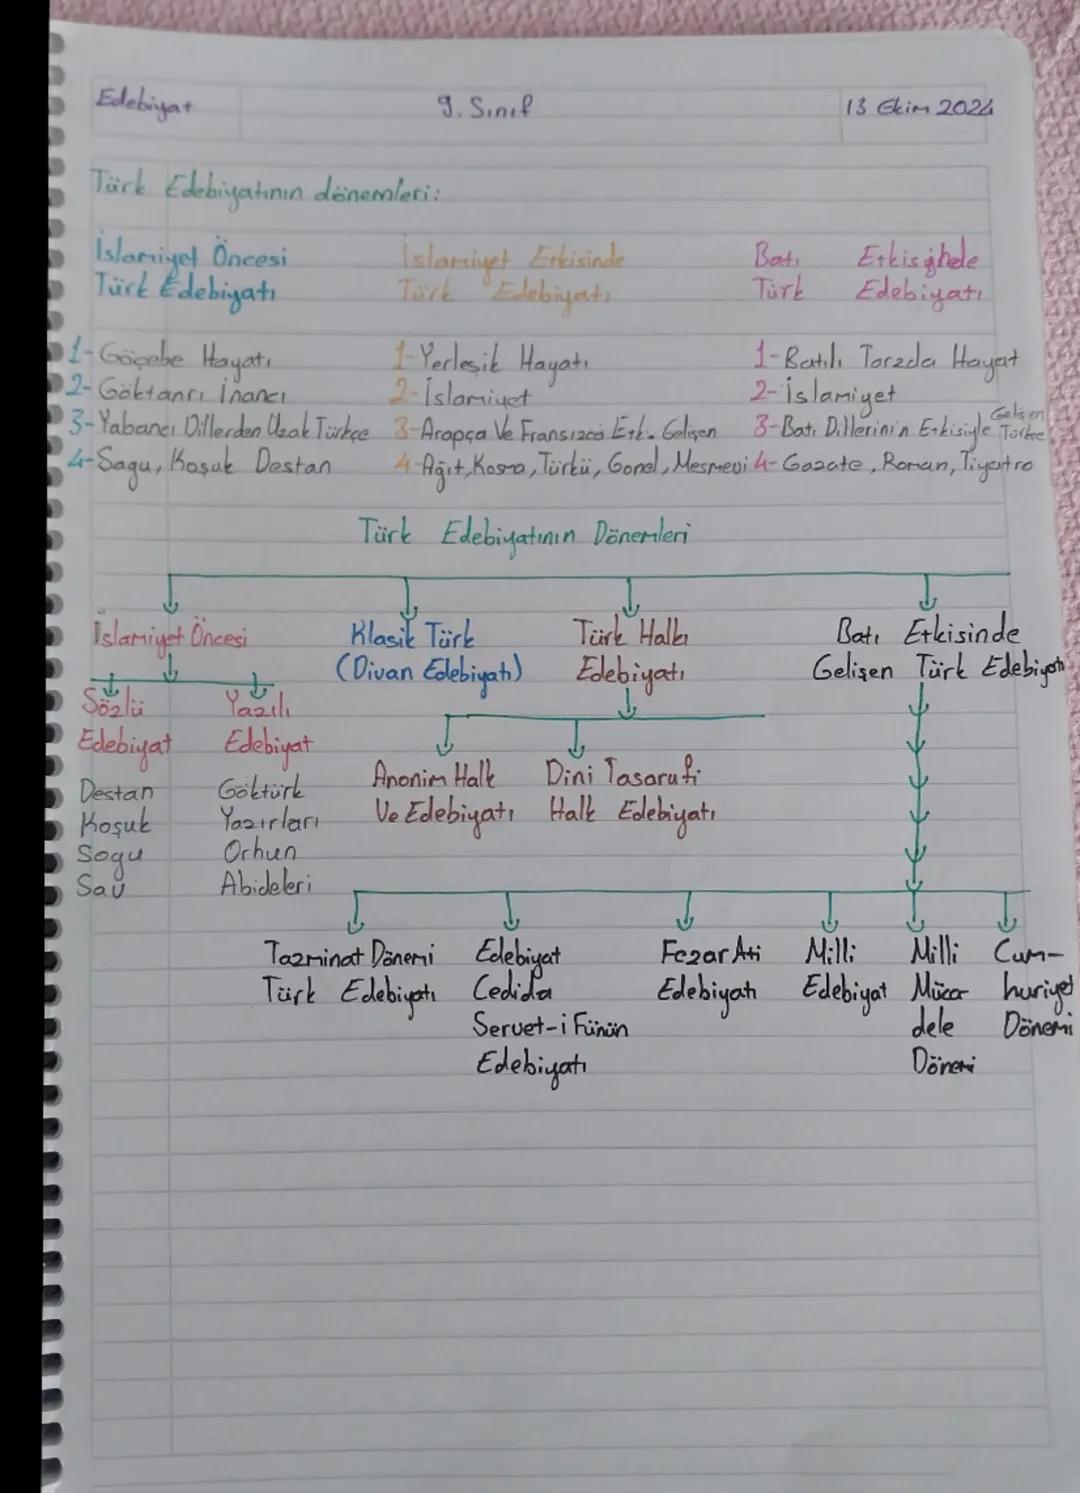 Edebiyat
9. Sınıf
13 Ekim 2024
Türk Edebiyatının dönemleri:
İslamiyet Öncesi
Türk Edebiyatı
1-Göçebe Hayatı
2-Göktanrı İnancı
3-Yabancı Dillerden Uzak Türkçe
4-Sagu, Koşuk Destan
İslamiyet Etkisinde
Türk Edebiyatı
1-Yerleşik Hayatı
2-İslamiyet
3-Arapça Ve Fransızca Etk. Gelişen
4-Ağıt, Kosma, Türkü, Gonel, Mesmevi
Batı Etkisinde
Türk Edebiyatı
1-Batılı Tarzda Hayat
2-İslamiyet
3-Batı Dillerinin Etkisiyle Gelişen Türkçe
4-Gazate, Roman, Tiyatro
Türk Edebiyatının Dönemleri
İslamiyet Öncesi
Sözlü
Edebiyat
Destan
Koşuk
Sogu
Sav
Yazılı
Edebiyat
Göktürk
Yazırları
Orhun
Abideleri
Klasik Türk
(Divan Edebiyatı)
Türk Halkı
Edebiyatı
Anonim Halk
Ve Edebiyatı
Dini Tasarufi
Halk Edebiyatı
Batı Etkisinde
Gelişen Türk Edebiyatı
Tazminat Dönemi
Türk Edebiyatı
Edebiyat
Cedida
Servet-i Fünün
Edebiyatı
Fezar Ati
Edebiyatı
Milli
Edebiyat
Milli
Müca-
dele
Dönemi
Cum-
huriyet
Dönemi